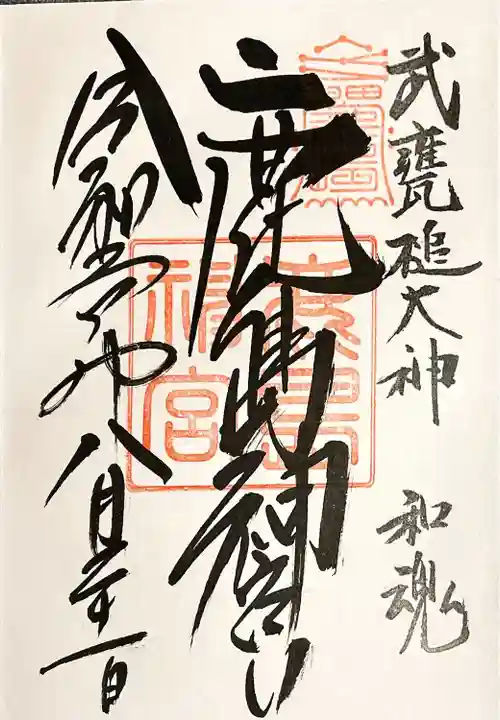 武甕槌大神 和魂
鹿島神宮
令和六年八月三十一日
鹿島神宮